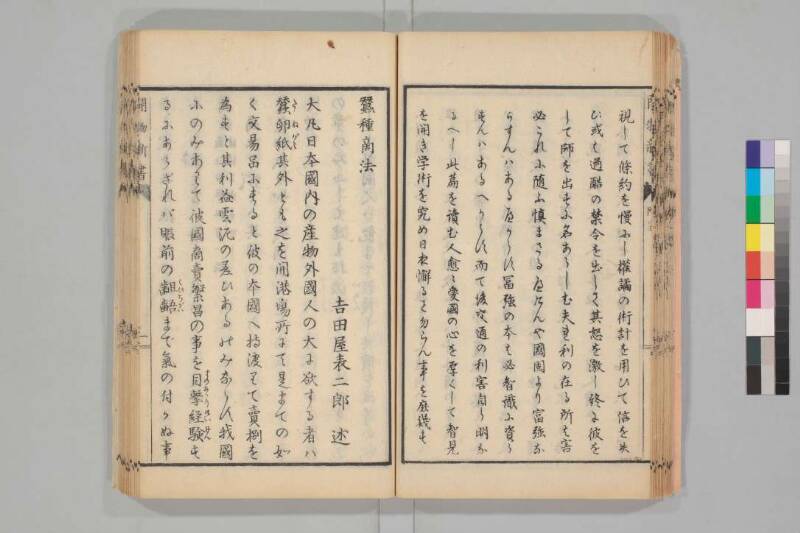 視して條約を慢にし權謀の術計を用ひて信を失
ひ或は過酷の禁令を出して其怒を激し終に彼を
して師を出すに名あらしむ夫れ利の在る所は害
必これに随ふ慎まざる
国固より富強な
らずんバあるべからず富強の本は必智識に資ら
ずんバあるべからず而て後交通の利害自ら明な
るべし此篇を讀む人愈々愛國の心を厚くして智見
を開き学術を究め日夜懈る事を庶幾す
蠶種商法
吉田屋表二郎 述
大凡日本國内の産物外國人の大に欲する者ハ
蠶卵紙其外とも之を開港場所にて是までの如
く交易品にすると彼の本國へ持渡りて賣捌を
為すと其利益雲泥の差ひあるのみならず我國
にのみありて彼國商賣繁昌の事を目撃経験せ
ざれバ眼前の齟齬まで氣の付かぬ事
開物新書